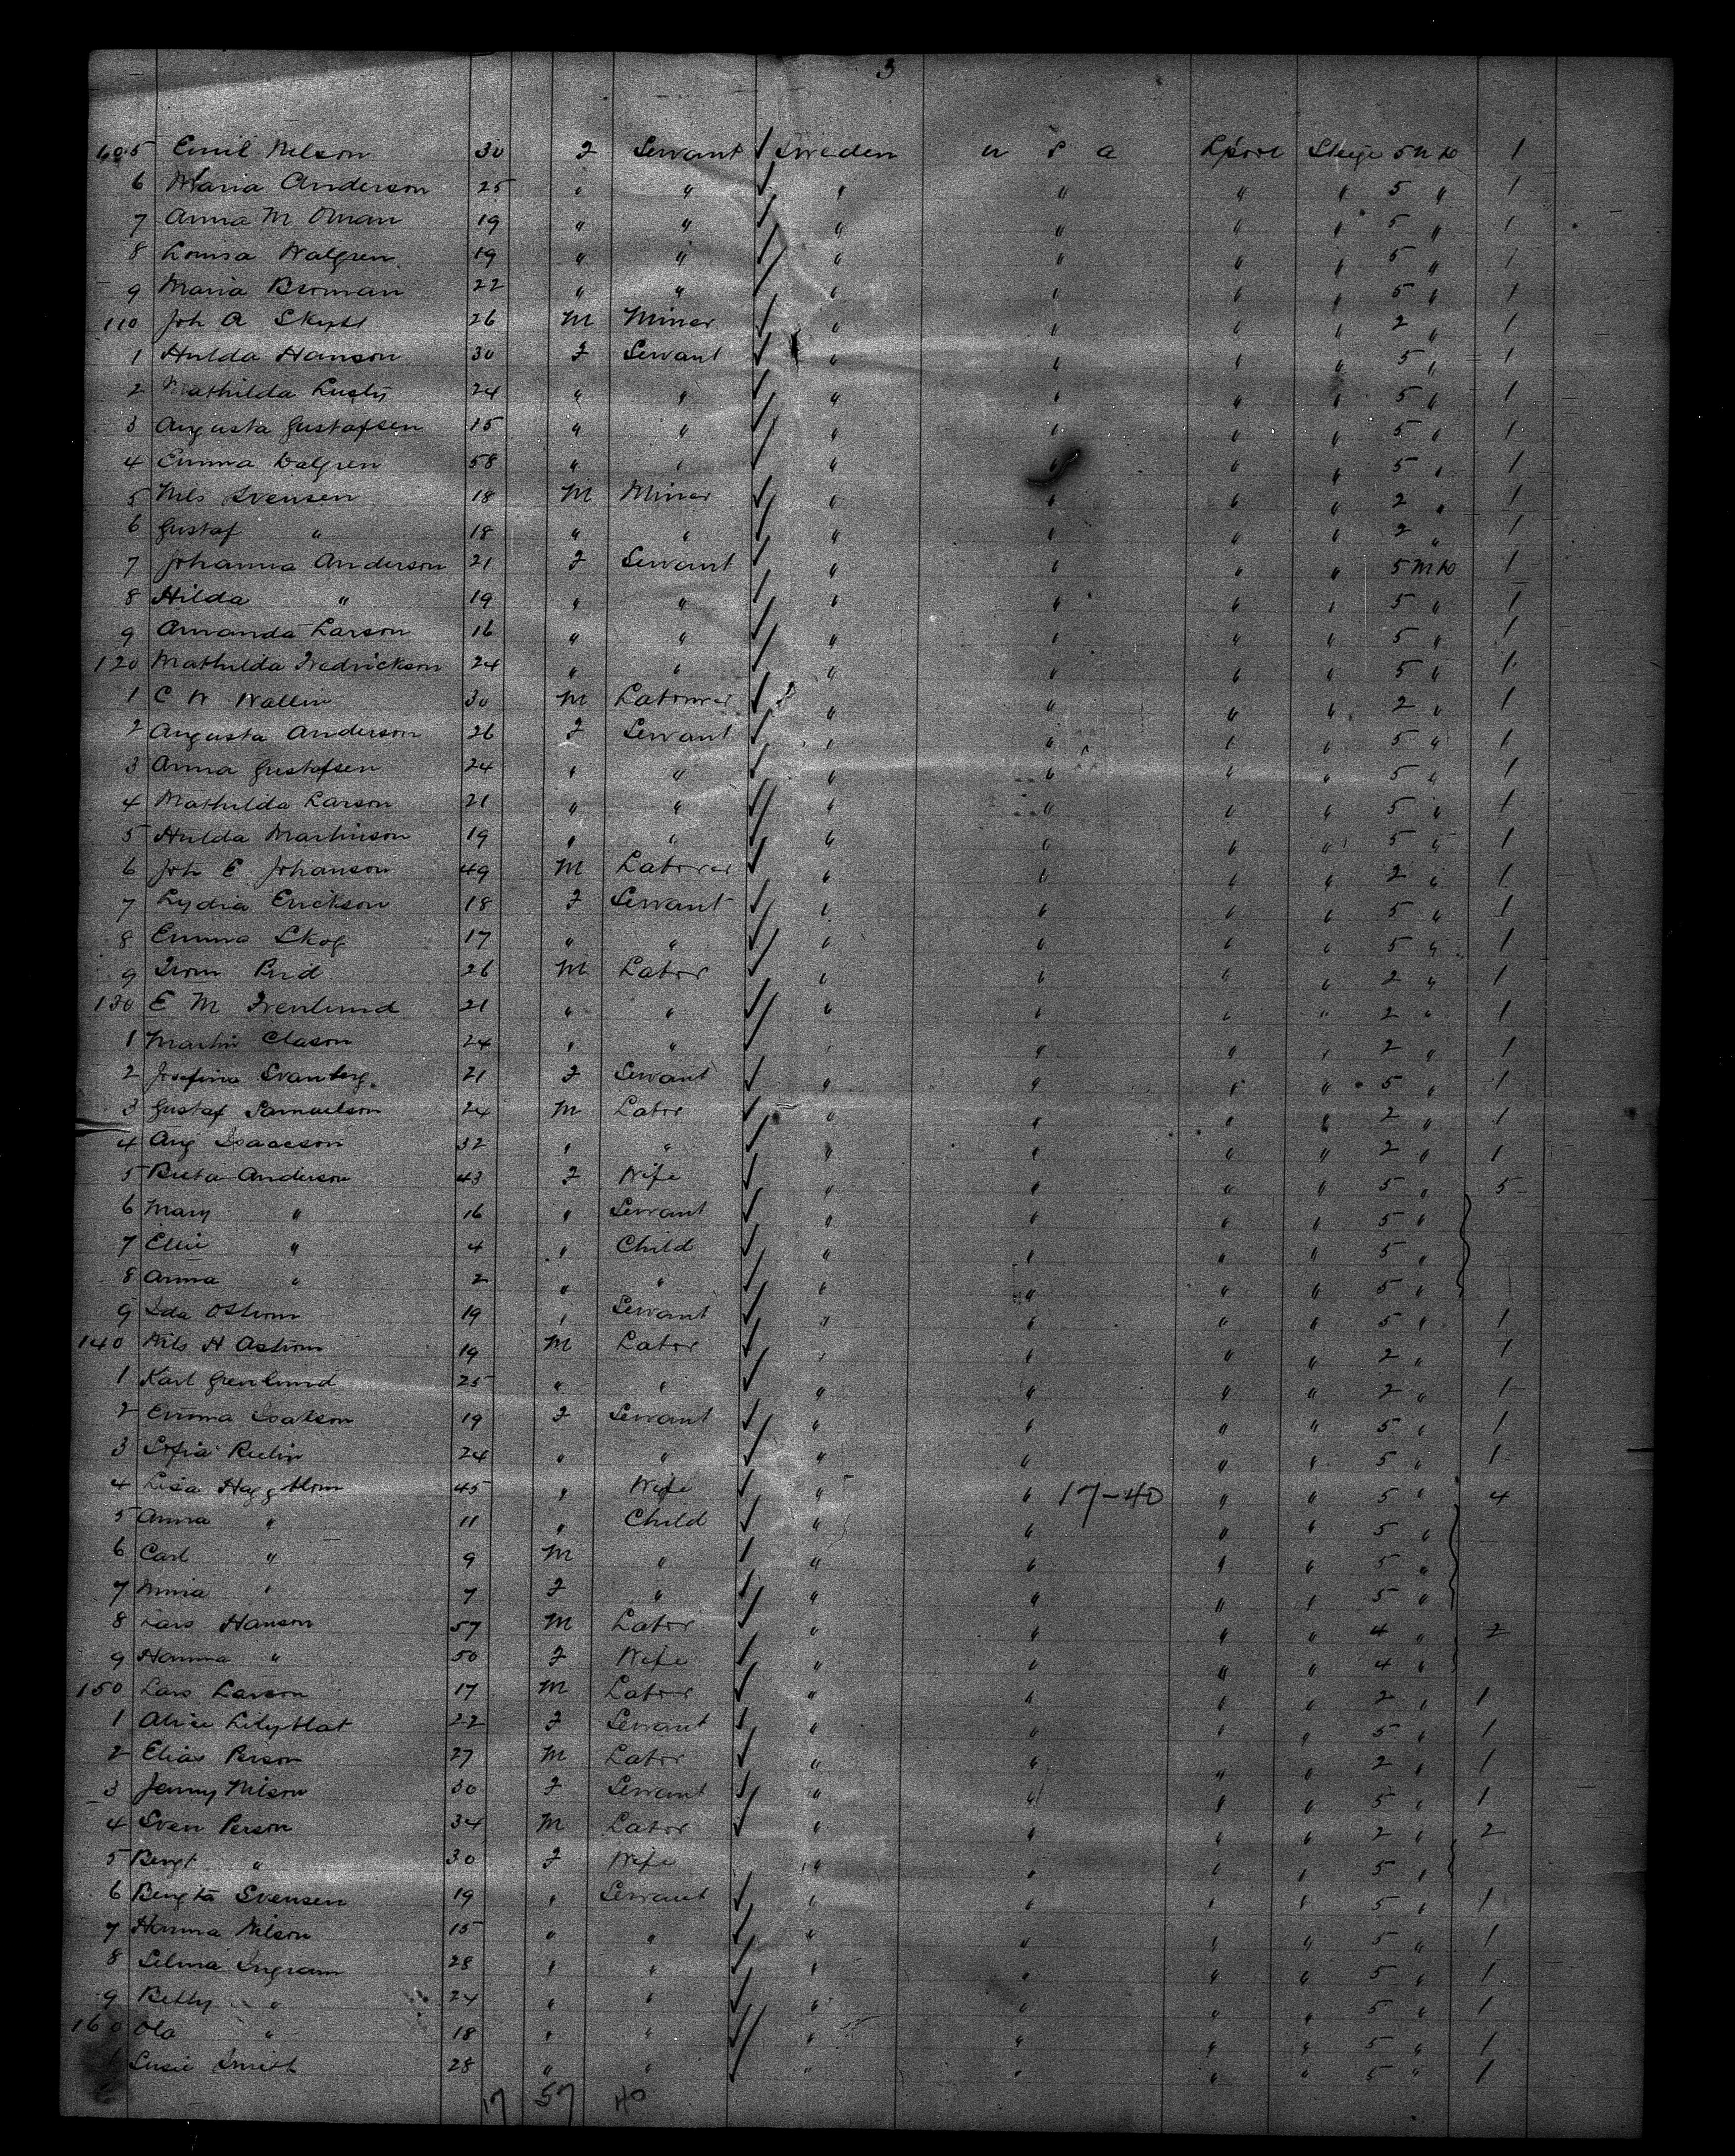 3
605 Emil Nelson 30 F Servant ✓ Sweden U S A Lpool Stege 5 M to 1
6 Maria Anderson 25 " " ✓ " " " " 5 " 1
7 Anna M Oman 19 " " ✓ " " " " 5 " 1
8 Louisa Walgren 19 " " ✓ " " " " 5 " 1
9 Maria Berman 22 " " ✓ " " " " 5 " 1
110 Joh A 26 M Miner ✓ " " " " 2 " 1
1 Hulda Hanson 30 F Servant ✓ " " " " 5 " 1
2 Mathilda 24 " " ✓ " " " " 5 " 1
3 Augusta Gustafsen 15 " " ✓ " " " " 5 " 1
4 Emma Dalgren 58 " " ✓ " " " " 5 " 1
5 Nils Svensen 18 M Miner ✓ " " " " 2 " 1
6 Gustaf " 18 " " ✓ " " " " 2 " 1
7 Johanna Anderson 21 F Servant ✓ " " " " 5 M to 1
8 Hilda " 19 " " ✓ " " " " 5 " 1
9 Amanda Larson 16 " " ✓ " " " " 5 " 1
120 Mathilda Fredrickson 24 " " ✓ " " " " 5 " 1
1 C W Wallin 30 M Labourer ✓ " " " " 2 " 1
2 Augusta Anderson 26 F Servant ✓ " " " " 5 " 1
3 Anna Gustafsen 24 " " ✓ " " " " 5 " 1
4 Mathilda Larson 21 " " ✓ " " " " 5 " 1
5 Hulda Martinson 19 " " ✓ " " " " 5 " 1
6 Joh E Johanson 49 M Laborer ✓ " " " " 2 " 1
7 Lydia Erickson 18 F Servant ✓ " " " " 5 " 1
8 Emma Skog 17 " " ✓ " " " " 5 " 1
9 26 M Labor ✓ " " " " 2 " 1
130 E M 21 " " ✓ " " " " 2 " 1
1 Martin Clason 24 " " ✓ " " " " 2 " 1
2 Josefina Svanberg 21 F Servant ✓ " " " " 5 " 1
3 Gustaf Samuelson 24 M Labor ✓ " " " " 2 " 1
4 Aug Isaacson 32 " " ✓ " " " " 2 " 1
5 Brita Anderson 43 F Wife ✓ " " " " 5 " 5
6 Mary " 16 " Servant ✓ " " " " 5 "
7 Ellie " 4 " Child ✓ " " " " 5 "
8 Anna " 2 " " ✓ " " " " 5 "
9 Ida Ostrom 19 " Servant ✓ " " " " 5 " 1
140 Nils H Astrom 19 M Labor ✓ " " " " 2 " 1
1 Karl Grenlund 25 " " ✓ " " " " 2 " 1
2 Emma Isakson 19 F Servant ✓ " " " " 5 " 1
3 Sofia 24 " " ✓ " " " " 5 " 1
4 Lisa Haggblom 45 " Wife ✓ " " 17-40 " " 5 " 4
5 Anna " 11 " Child ✓ " " " " 5 "
6 Carl " 9 M " ✓ " " " " 5 "
7 Minia " 7 F " ✓ " " " " 5 "
8 Lars Hanson 57 M Labor ✓ " " " " 4 " 2
9 Hanna " 50 F Wife ✓ " " " " 4 "
150 Lars Larson 17 M Labor ✓ " " " " 2 " 1
1 Alice Lilyblat 22 F Servant ✓ " " " " 5 " 1
2 Elias Person 27 M Labor ✓ " " " " 2 " 1
3 Jenny Nilson 30 F Servant ✓ " " " " 5 " 1
4 Sven Person 34 M Labor ✓ " " " " 2 " 2
5 Bengt " 30 F Wife " " " " 5 "
6 Bengta Svensen 19 " Servant ✓ " " " " 5 " 1
7 Hanna Nilson 15 " " ✓ " " " " 5 " 1
8 Selma Ingram 28 " " ✓ " " " " 5 " 1
9 Betty " 24 " " ✓ " " " " 5 " 1
160 Ola " 18 " " ✓ " " " " 5 " 1
Susie Smith 28 " " ✓ " " " " 5 " 1
17 57 40